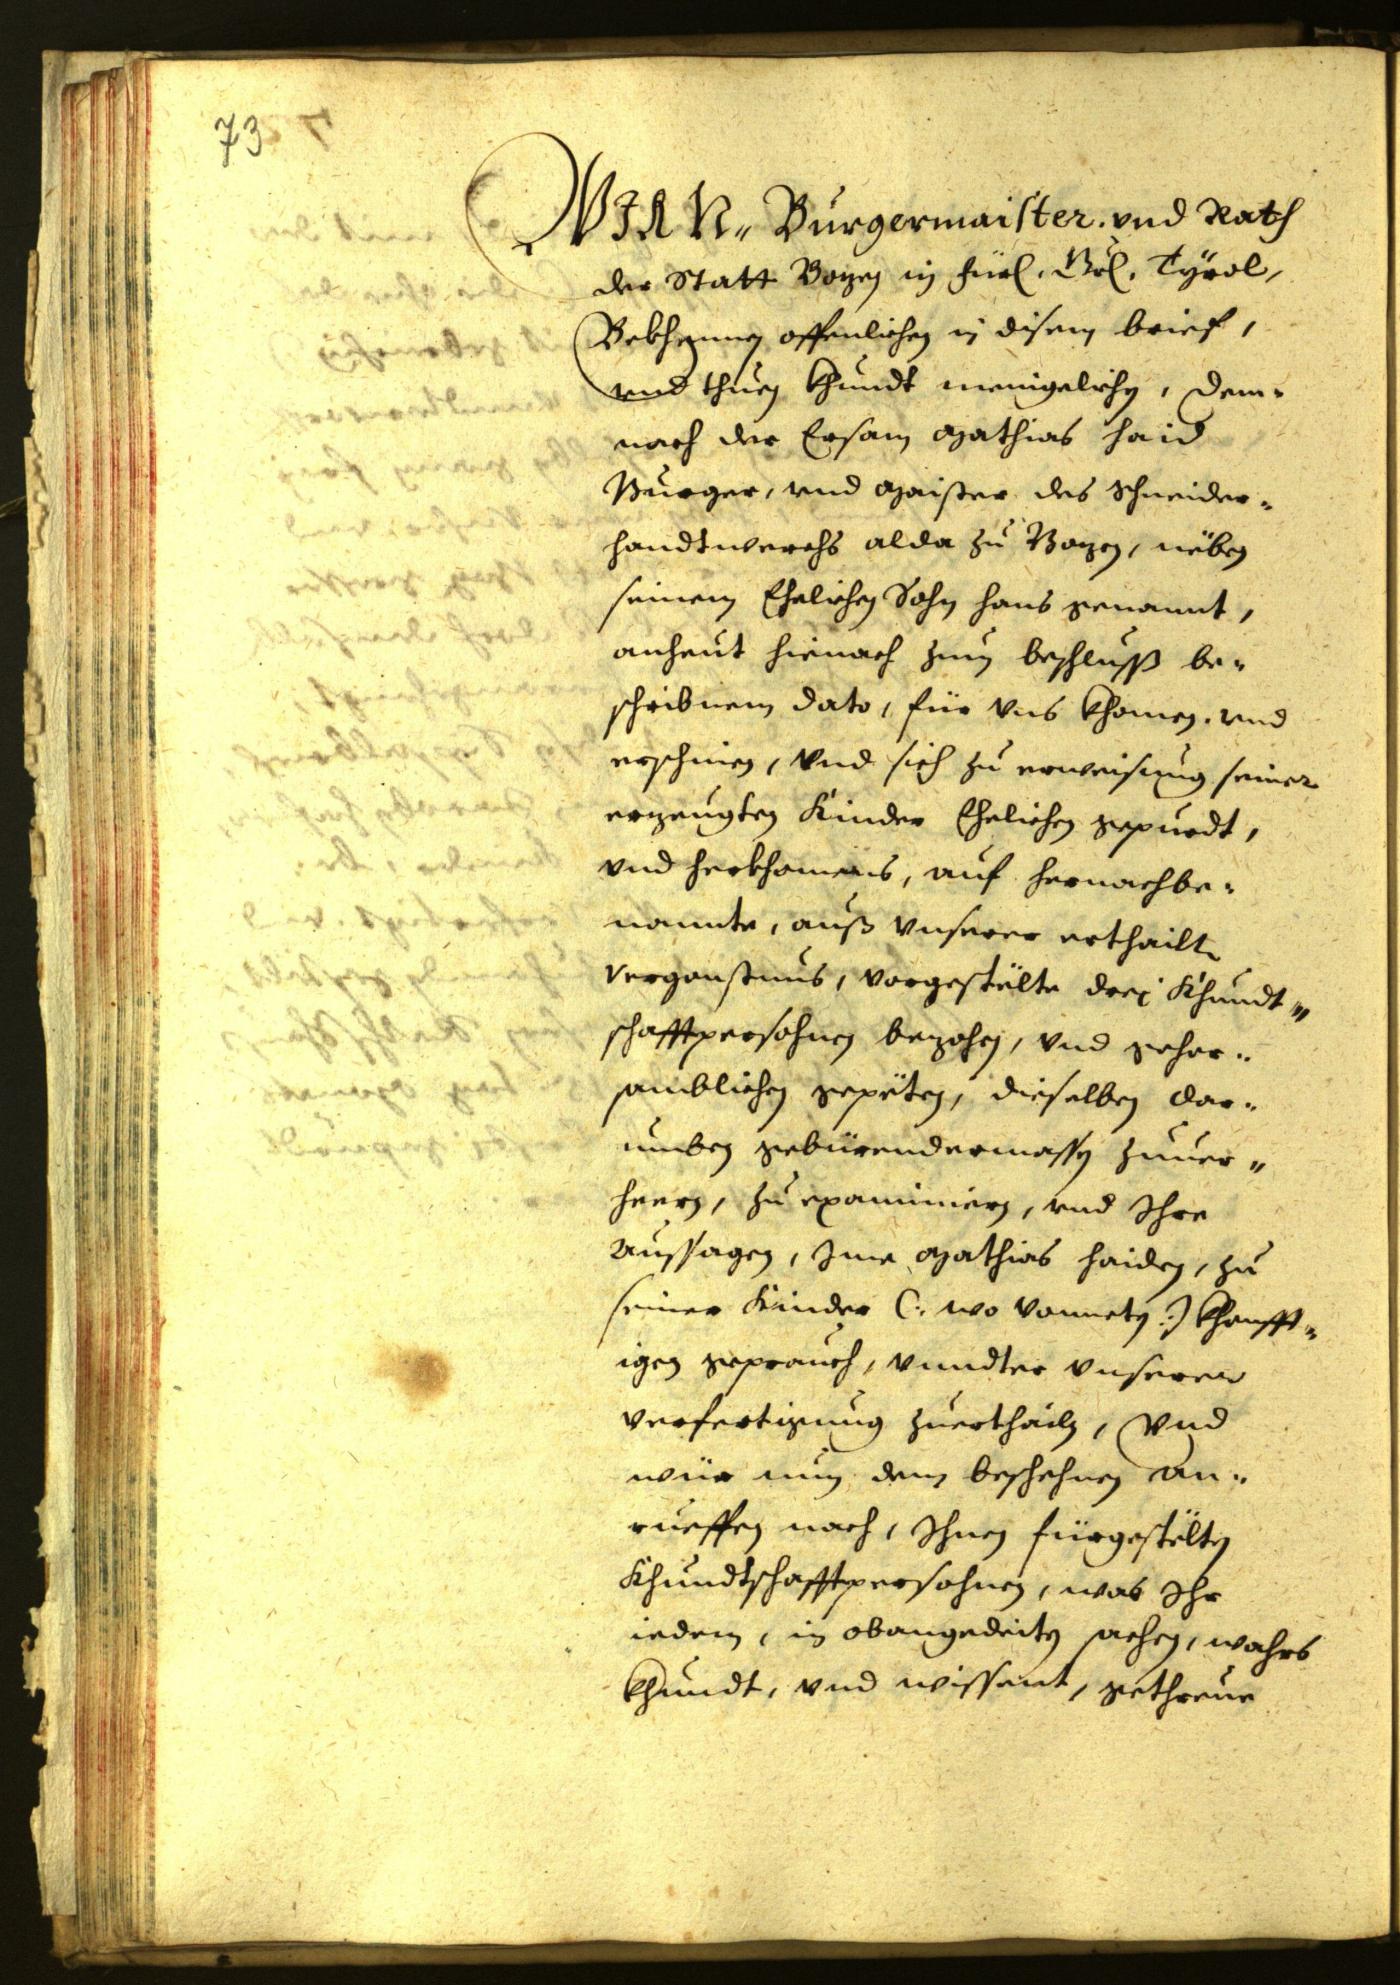 73
WIR N. Burgermaister. vnd Rath
der Statt Bozen in fürl. Grl. Tÿrol,
Bekhennen offenlichen in disem brief,
vnd thuen khundt menigelichen, Dem-
nach der Ersam Mathias Haid
Burger, vnd Maister des Schneider-
handtwerchs alda zu Bozen, neben
seinem Ehelichen Sohn Hans genannt,
anheut hienach zum beschluss be-
schribnem dato, für Vns khomen. vnd
erschinen, Vnd sich zu erweisung seiner
erzeugten Kinder Ehelichen gepurdt,
vnd herkhomens, auf hernachbe-
nannte, auß Vnserer erthailten
Vergonstnus, vorgestëlte drej Khundt-
schafftpersohnen bezohen, Vnd gehor-
samblichen gepëten, dieselben dar-
umben gebürendermassen zuuer-
heern, zu examiniern, vnd Ihre
Aussagen, Ime Mathias Haiden, zu
seiner Kinder (: wo vonneten :) khonfft-
igen geprauch, vnndter Vnserer
verfertigung zuerthailn, Vnd
wür nun dem beschehnen an-
rueffen nach, Ihnen fürgestëlten
Khundtschafftpersohnen, was Ihr
iedem, in obangedeiten sachen, wahrs
khundt, vnd wissent, gethreue